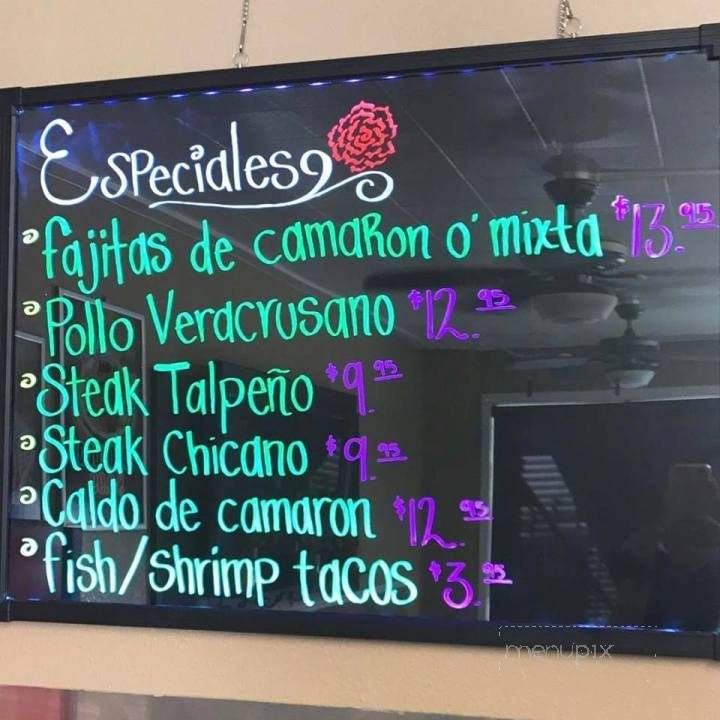 Especiales
fajitas de camaRon o' mixta $13.95
Pollo Veracrusano $12.95
Steak Talpeño $9.95
Steak Chicano $9.95
Caldo de camaron $12.95
fish/shrimp tacos $3.95
menupix